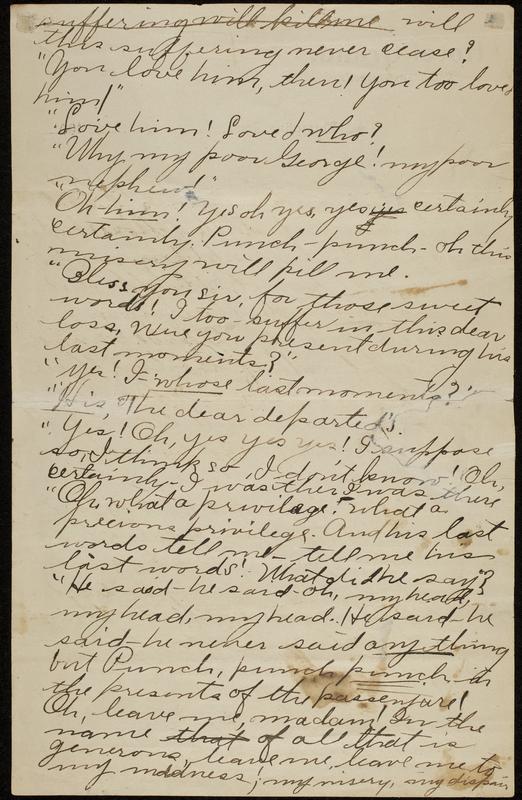 suffering will kill me will
this suffering never cease?
"You love him, then! You too loved
him!"
"Love him! Loved who?
"Why my poor George! my poor
nephew!"
"Oh-him! Yes oh yes, yes yes certainly
certainly. Punch-punch-oh this
misery will kill me.
"Bless you sir, for those sweet
words! I too-suffer in this dear
loss, Were you present during his
last moments?"
"Yes! I-whose last moments?"
"His, The dear departed's.
"Yes! Oh, yes yes yes! I suppose
so, I think so, I don't know! Oh,
certainly-I was there I was there
"Oh, what a privilage! what a
precious privilege. And his last
words tell me-tell me his
last words! What did he say?
"He said-he said-oh, my head,
my head, my head. He said-he
said-he never said anything
but Punch, punch, punch in
the presents of the passenjare!
Oh, leave me, madam! In the
name that of all that is
generous, leave me, leave me to
my madness; my misery, my dispair